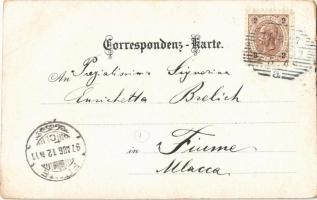 Correspondenz-Karte.
2 2
An Pregiatissima Signorina
Enrichetta Brelich
in Fiume
Mlacca
97 AUG 12